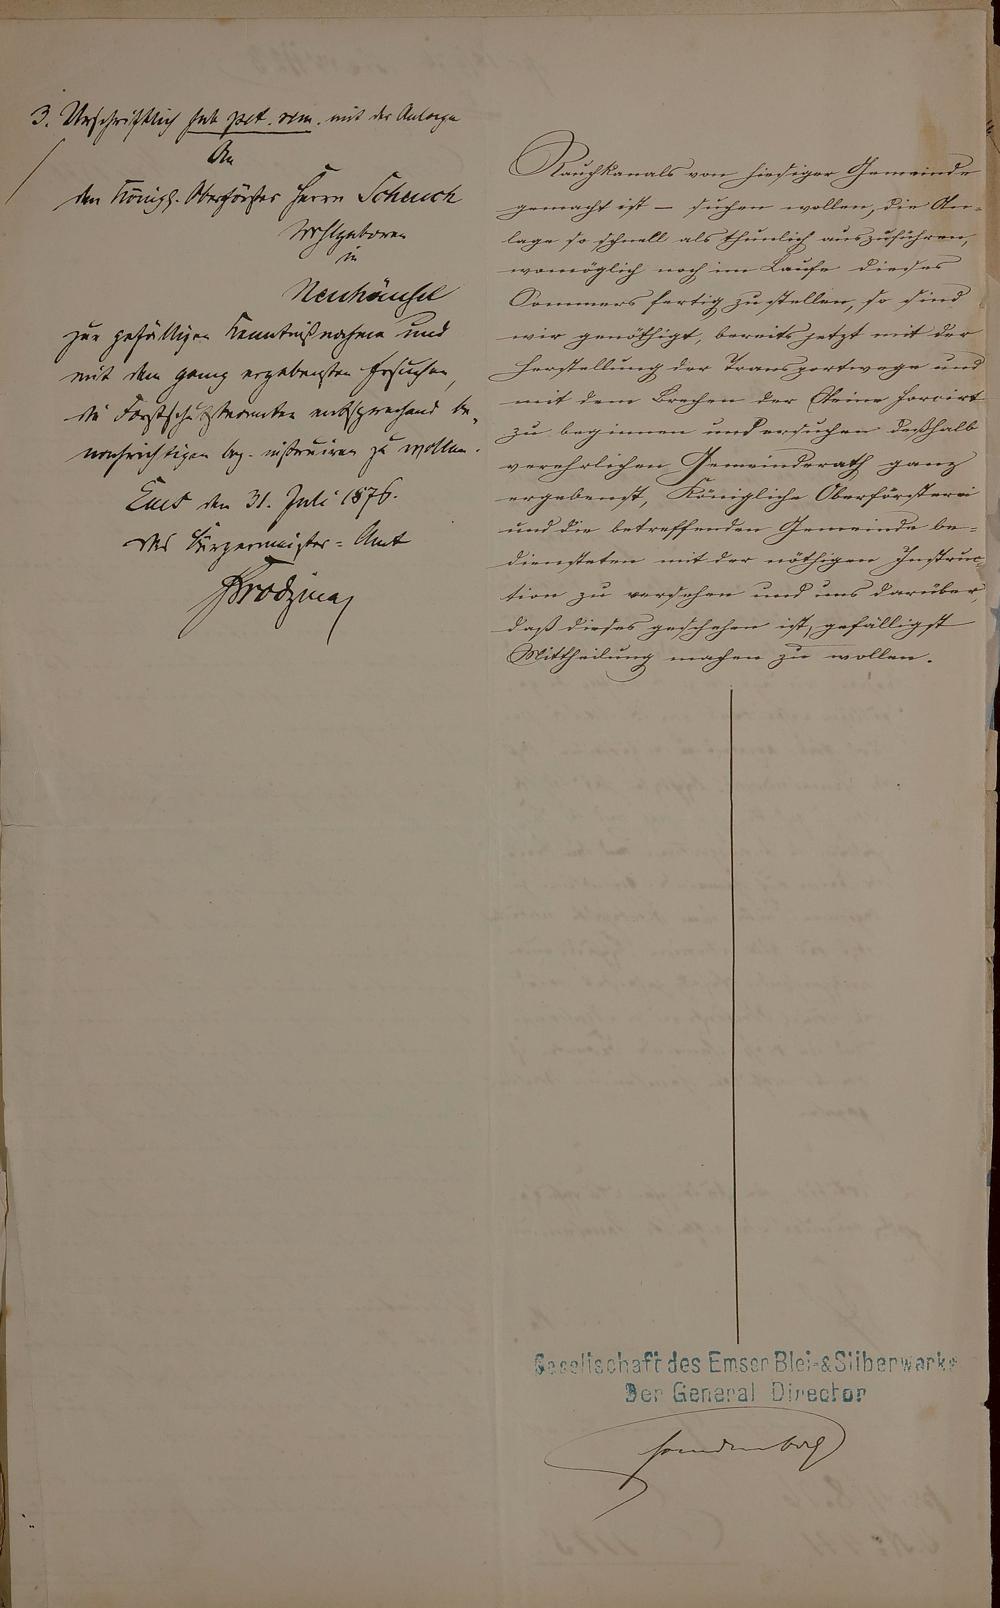 3. Urschriftlich sub pet. rem. mit der Anlage
An
den Königl. Oberförster Herrn Scheuch
Wohlgeboren
in
Neuhäusel
zur gefälligen Kenntnißnahme und
mit dem ganz ergebensten Ersuchen,
die Forstschutzbeamten entsprechend be-
nachrichtigen bez. instruiren zu wollen.
Ems den 31. Juli 1876.
Das Bürgermeister-Amt
Rauchkanals von hiesiger Gemeinde
gemacht ist – suchen wollen, die An-
lage so schnell als thunlich auszuführen,
womöglich noch im Laufe dieses
Sommers fertig zu stellen, so sind
wir genöthigt, bereits jetzt mit der
Herstellung der Transportwege und
mit dem Brechen der Steine forcirt
zu beginnen und ersuchen deßhalb
verehrlichen Gemeinderath ganz
ergebenst, Königliche Oberförsterei
und die betreffenden Gemeinde be-
diensteten mit der nöthigen Instruc-
tion zu versehen und uns darüber,
daß dieses geschehen ist, gefälligst
Mittheilung machen zu wollen.
Gesellschaft des Emser Blei-& Silberwerks
Der General Director